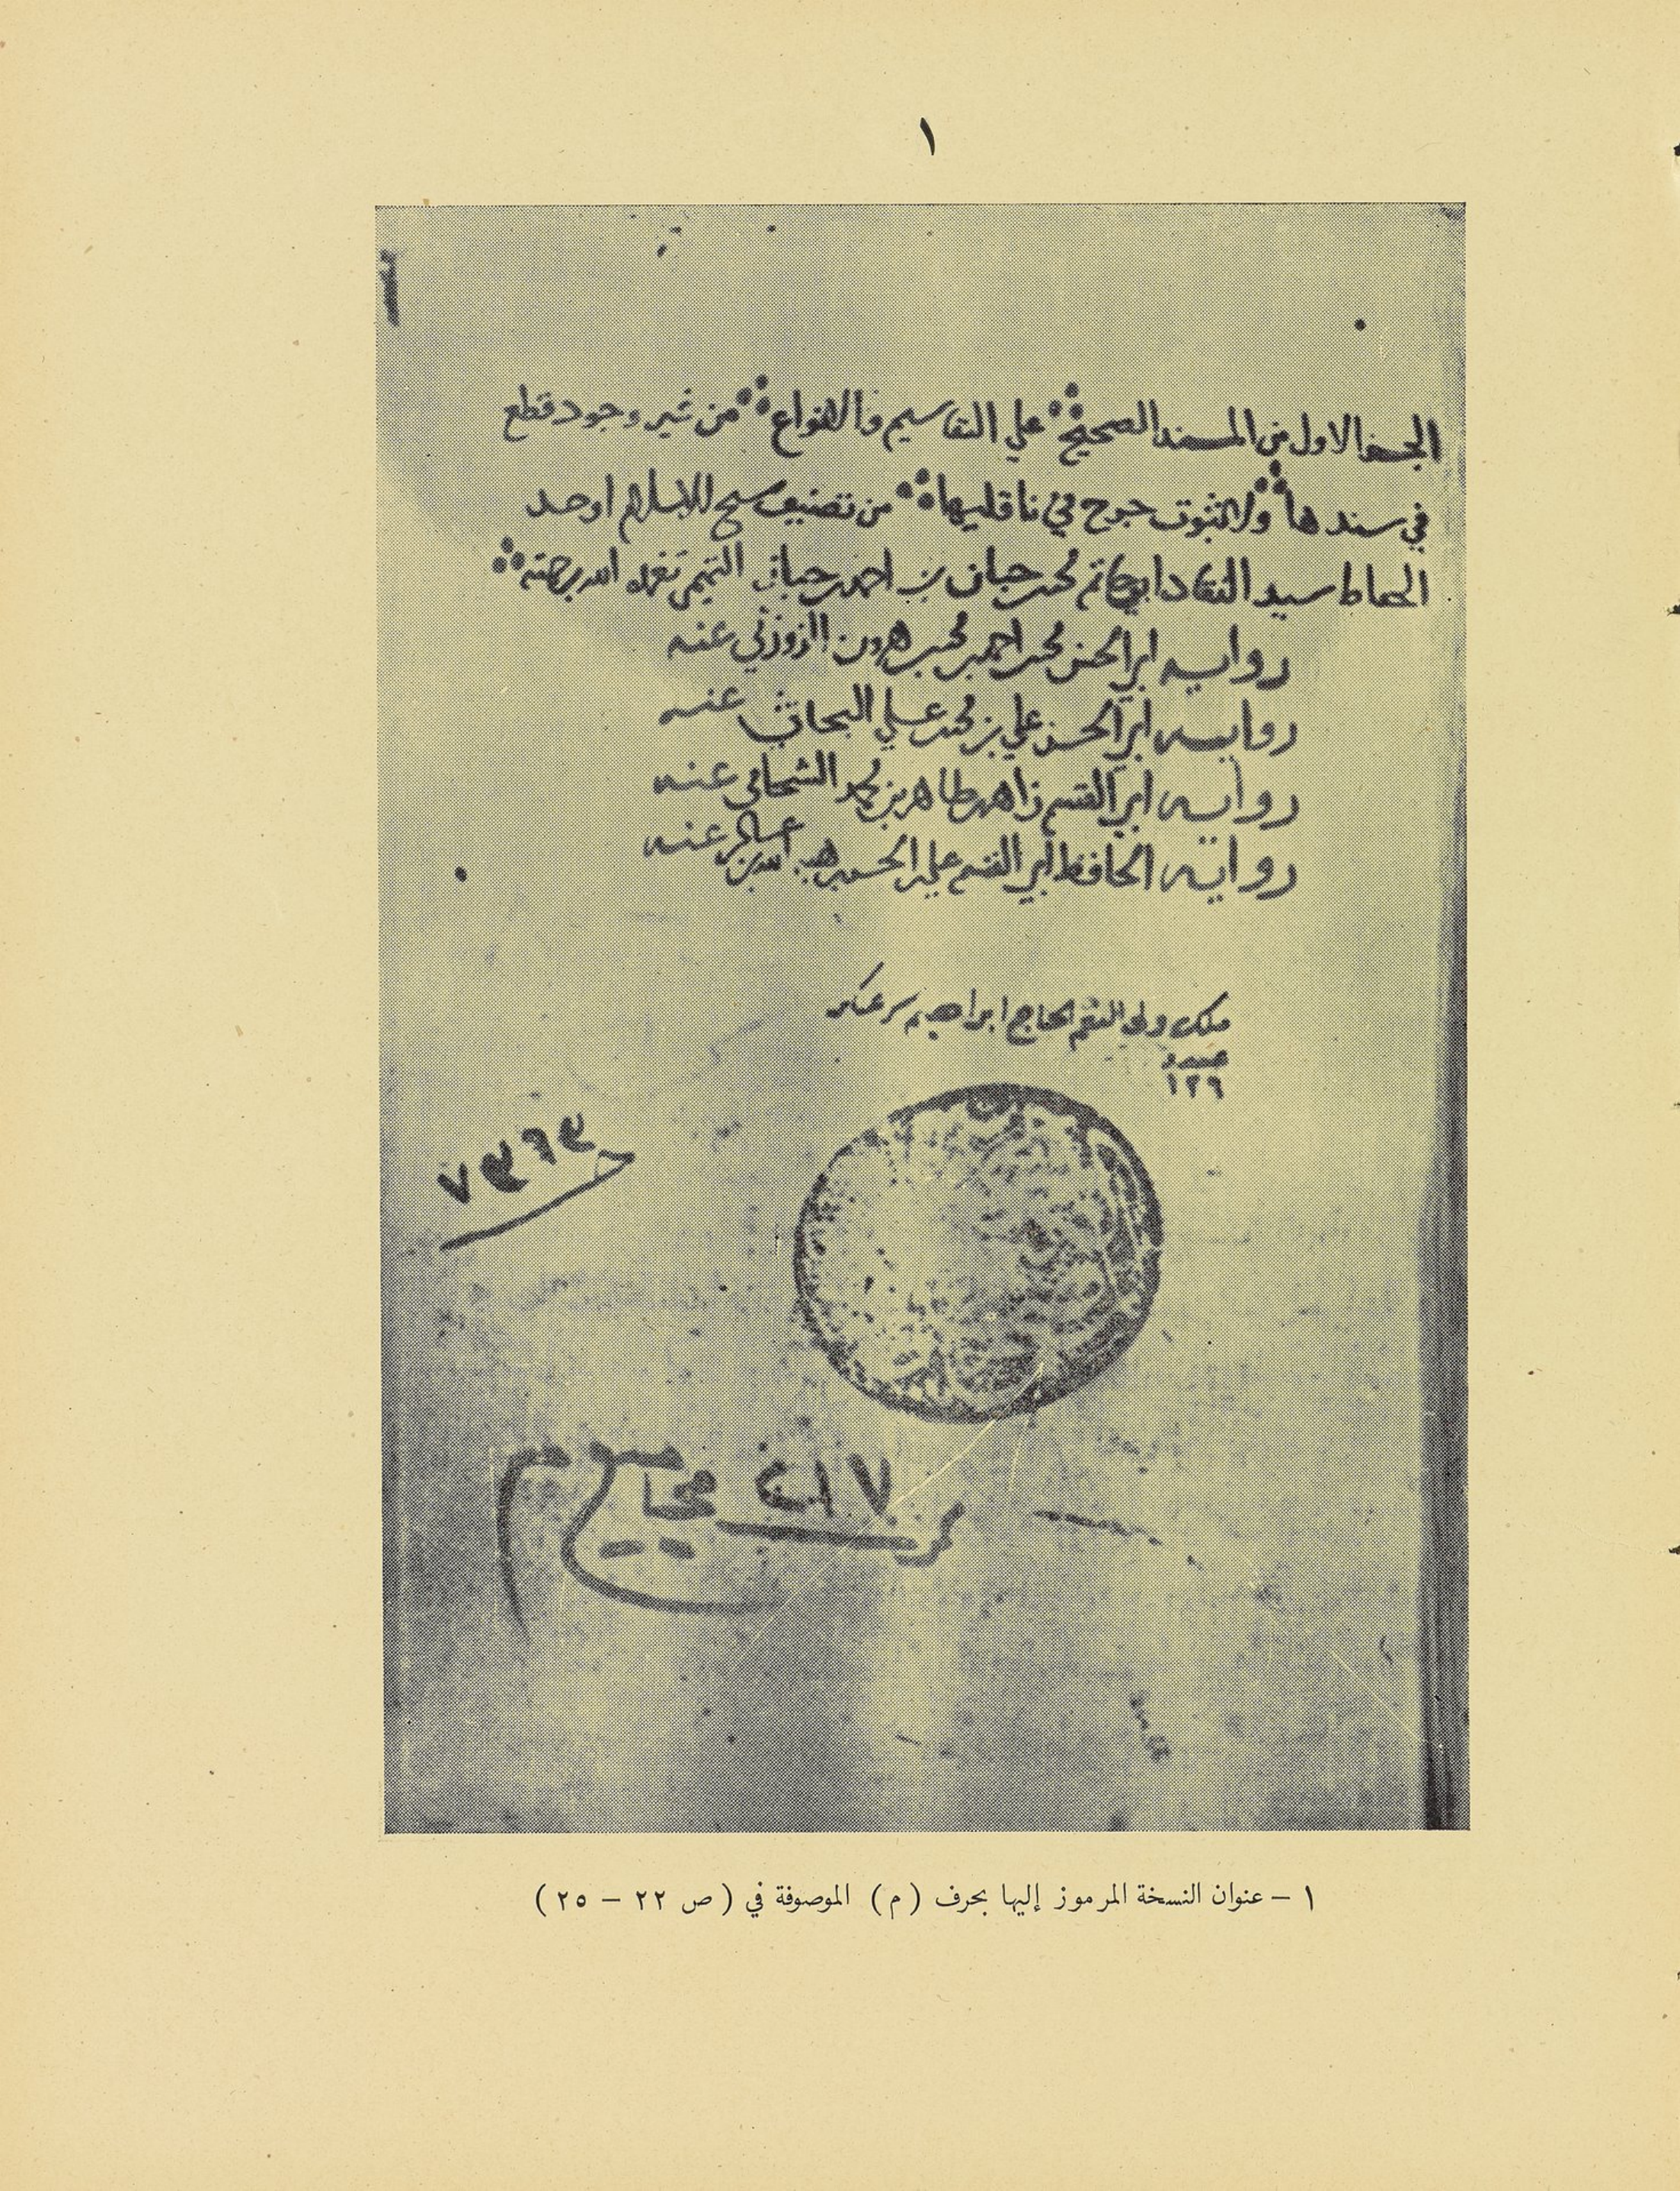 ١
الجزء الاول من المسند الصحيح على التقاسيم والانواع من غير وجود قطع
في سندها ولا ثبوت جرح في ناقليها من تصنيف شيخ الاسلام اوحد
الحفاظ سيد النقاد ابي حاتم محمد بن حبان بن احمد بن حبان التميمي تغمده الله برحمته
رواية ابي الحسن محمد بن احمد بن محمد بن هرون الزوزني عنه
رواية ابي الحسن علي بن محمد بن علي البحاثي عنه
رواية ابي القسم زاهر بن طاهر بن محمد الشحامي عنه
رواية الحافظ ابي القسم علي بن الحسن بن هبة الله بن عساكر عنه
ملك ولي النعم الحاج ابراهيم سر عسكر
١٢٦
٢١٧ مجاميع م
١ – عنوان النسخة المرموز إليها بحرف ( م ) الموصوفة في ( ص ٢٢ – ٢٥ )